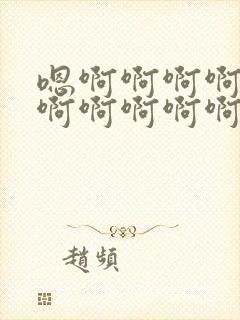 嗯啊啊啊啊
啊啊啊啊啊
趙頻